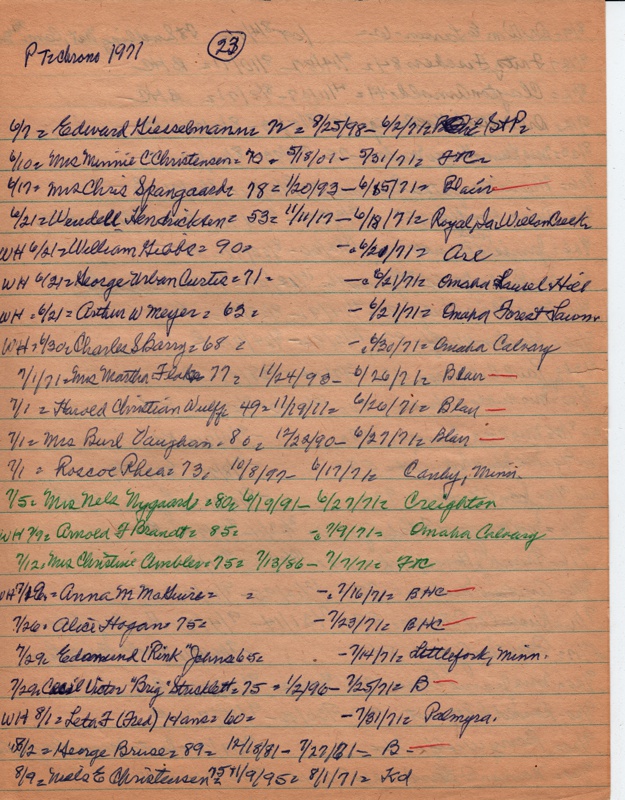 P Techrons 1971 (23)
6/7 = Edward Giesselmann = 72 = 8/25/98 - 6/2/71 =
6/10 = Mrs Minnie C Christensen = 70 = 5/15/01 - 5/31/71 = FtC =
6/17 = Mrs Chris Spangaard = 78 = 1/20/93 - 6/15/71 = Blair
6/21 = Wendell Hendricksen = 53 = 11/11/17 - 6/18/71 = Royal, Ia
WH 6/21 = William Gibbs = 90 = - 6/20/71 =
WH 6/21 = George Urban Curtis = 71 = - 6/21/71 = Omaha Laurel Hill
WH = 6/21 = Arthur W Meyer = 62 = - 6/21/71 = Omaha Forest Lawn
WH = 6/30 = Charles S Barry = 68 = - 6/30/71 = Omaha Calvary
7/1/71 = Mrs Martha 77 = 10/24/93 - 6/26/71 = Blair
7/1 = Harold Christian Wulff 49 = 11/19/21 - 6/26/71 = Blair
7/1 = Mrs Burl Vaughan = 80 = 12/22/90 - 6/27/71 = Blair
7/1 = Roscoe Rhea = 73, 10/8/97 - 6/17/71 = Canby, Minn.
7/5 = Mrs Nels Nygaard = 80 = 6/19/91 - 6/27/71 = Creighton
WH 7/9 = Arnold F Brandt = 85 = - 7/9/71 = Omaha Calvary
7/12 = Mrs Christine Ambler = 75 = 7/13/86 - 7/7/71 = FtC
WH = Anna M McGuire = = - 7/16/71 = BHC
7/26 = Alice Hogan = 75 = - 7/23/71 = BHC
7/29 = Edamund (Rink "Johns 65 = - 7/14/71 = Littlefork, Minn.
7/29 = Cecil Victor "Brig" Stricklett = 75 = 1/2/96 - 7/25/71 = B
WH 8/1 = Leta F (Fred) Hans = 60 = - 7/31/71 = Palmyra.
8/2 = George Bruse = 89 = 12/18/81 - 7/27/71 - B -
8/9 = Niels E Christensen 75 = 11/9/95 = 8/1/71 = Kd